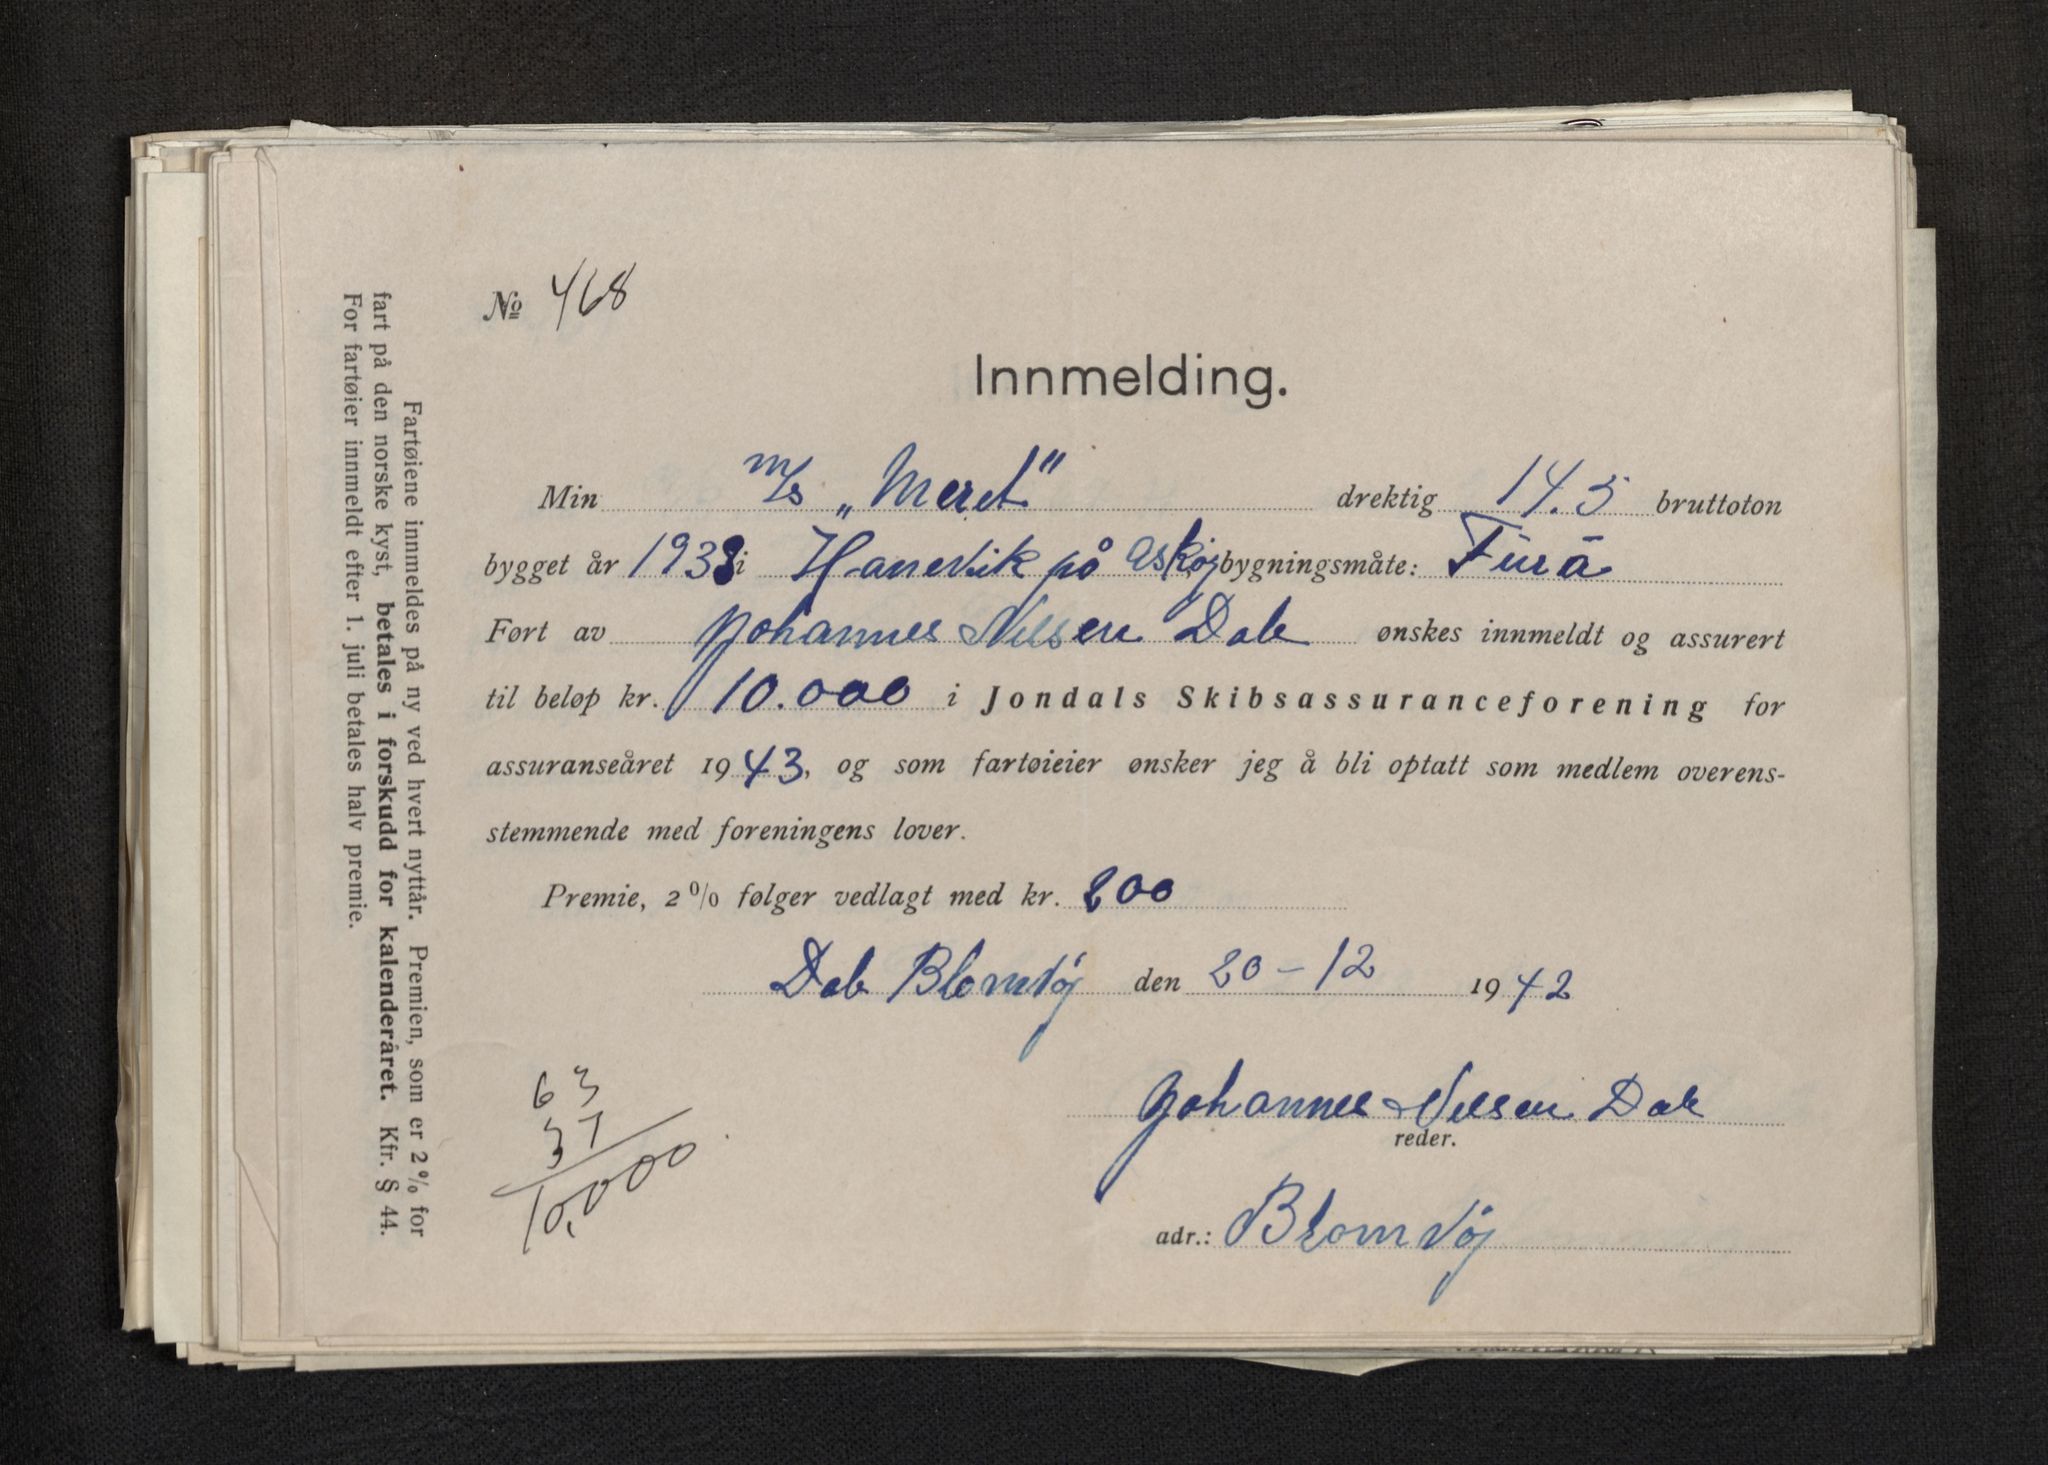 № 468
Innmelding.
Min m/s „Meret" drektig 14.5 bruttoton
bygget år 1938 i Hanevik på Askøj bygningsmåte: Furå
Ført av Johannes Nilsen Dale ønskes innmeldt og assurert
til beløp kr. 10.000 i Jondals Skibsassuranceforening for
assuranseåret 1943, og som fartøieier ønsker jeg å bli optatt som medlem overens-
stemmende med foreningens lover.
Premie, 2% følger vedlagt med kr. 200
Dale Blomvöj den 20-12 1942
Johannes Nilsen Dale
reder.
adr.: Blomvöj
63
37
10,000
Fartøiene innmeldes på ny ved hvert nyttår. Premien, som er 2% for
fart på den norske kyst, betales i forskudd for kalenderåret. Kfr. § 44.
For fartøier innmeldt efter 1. juli betales halv premie.